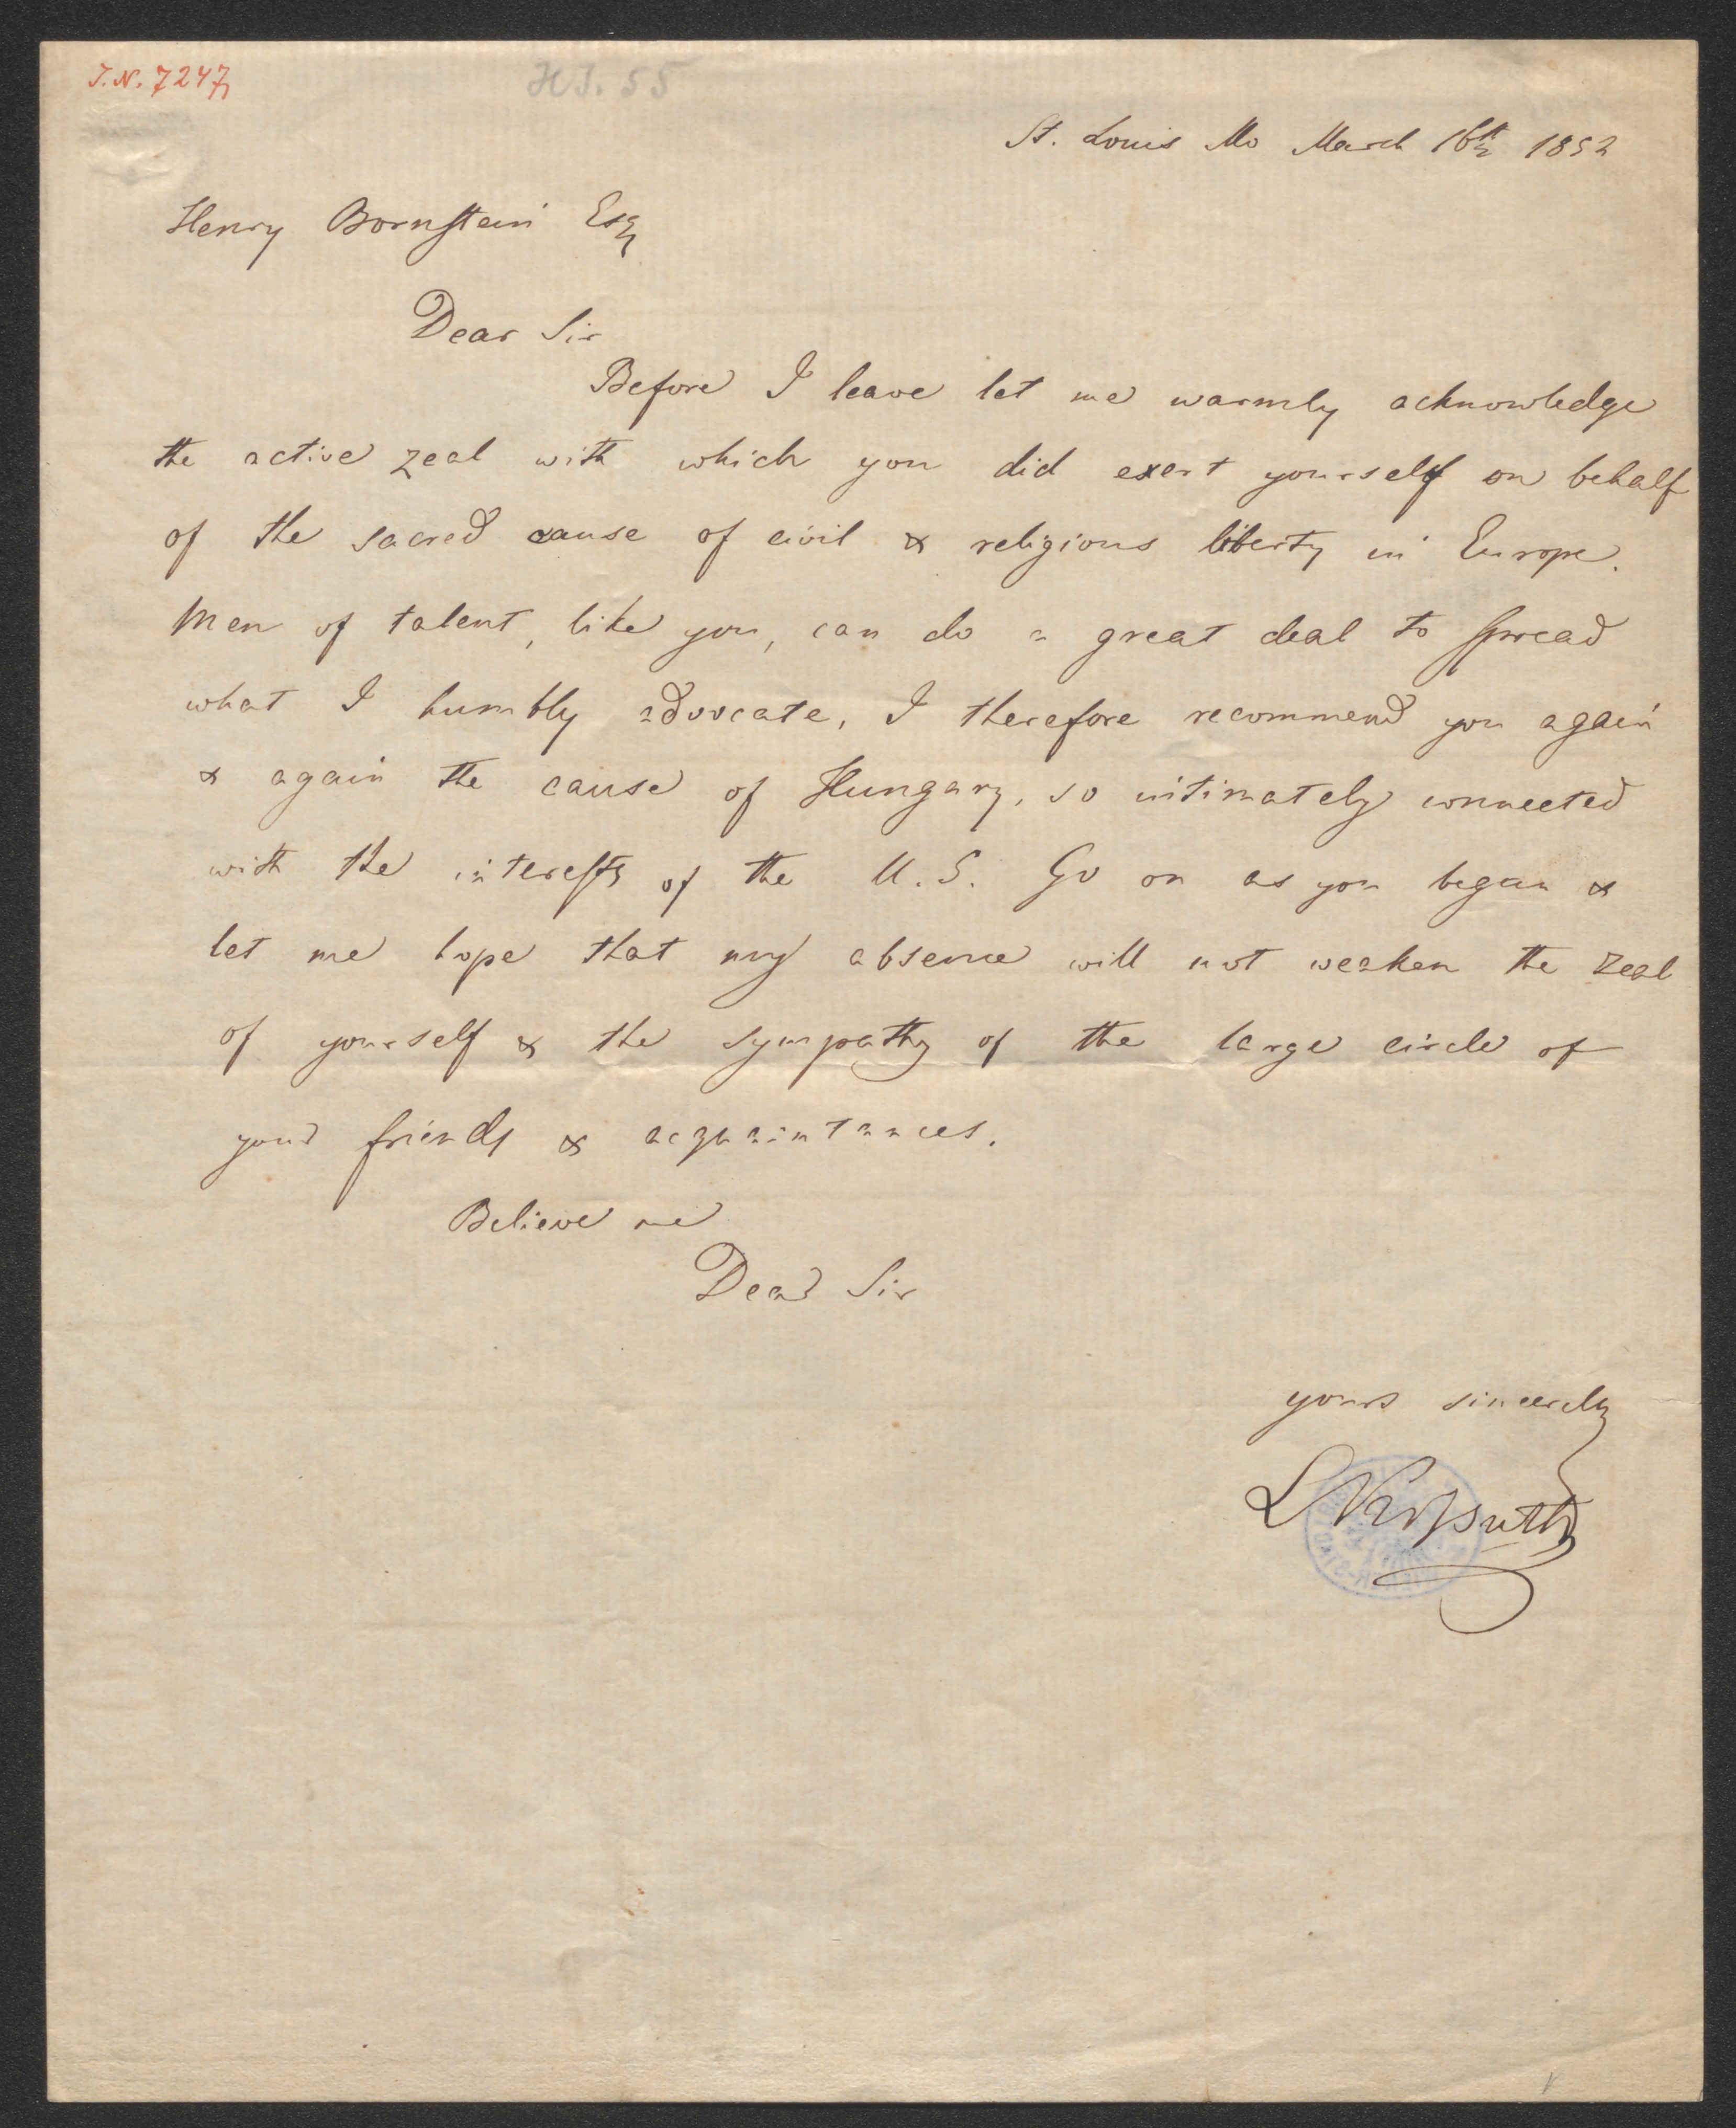 J.N. 7247
HJ. 55
St. Louis Mo March 16th 1852
Henry Bornstein Esq
Dear Sir
Before I leave let me warmly acknowledge
the active zeal with which you did exert yourself on behalf
of the sacred cause of civil & religious liberty in Europe.
Men of talent, like you, can do a great deal to spread
what I humbly advocate, I therefore recommend you again
& again the cause of Hungary, so intimately connected
with the interests of the U.S. Go on as you began &
let me hope that my absence will not weaken the zeal
of yourself & the sympathy of the large circle of
your friends & acquaintances.
Believe me
Dear Sir
yours sincerely
L Kossuth